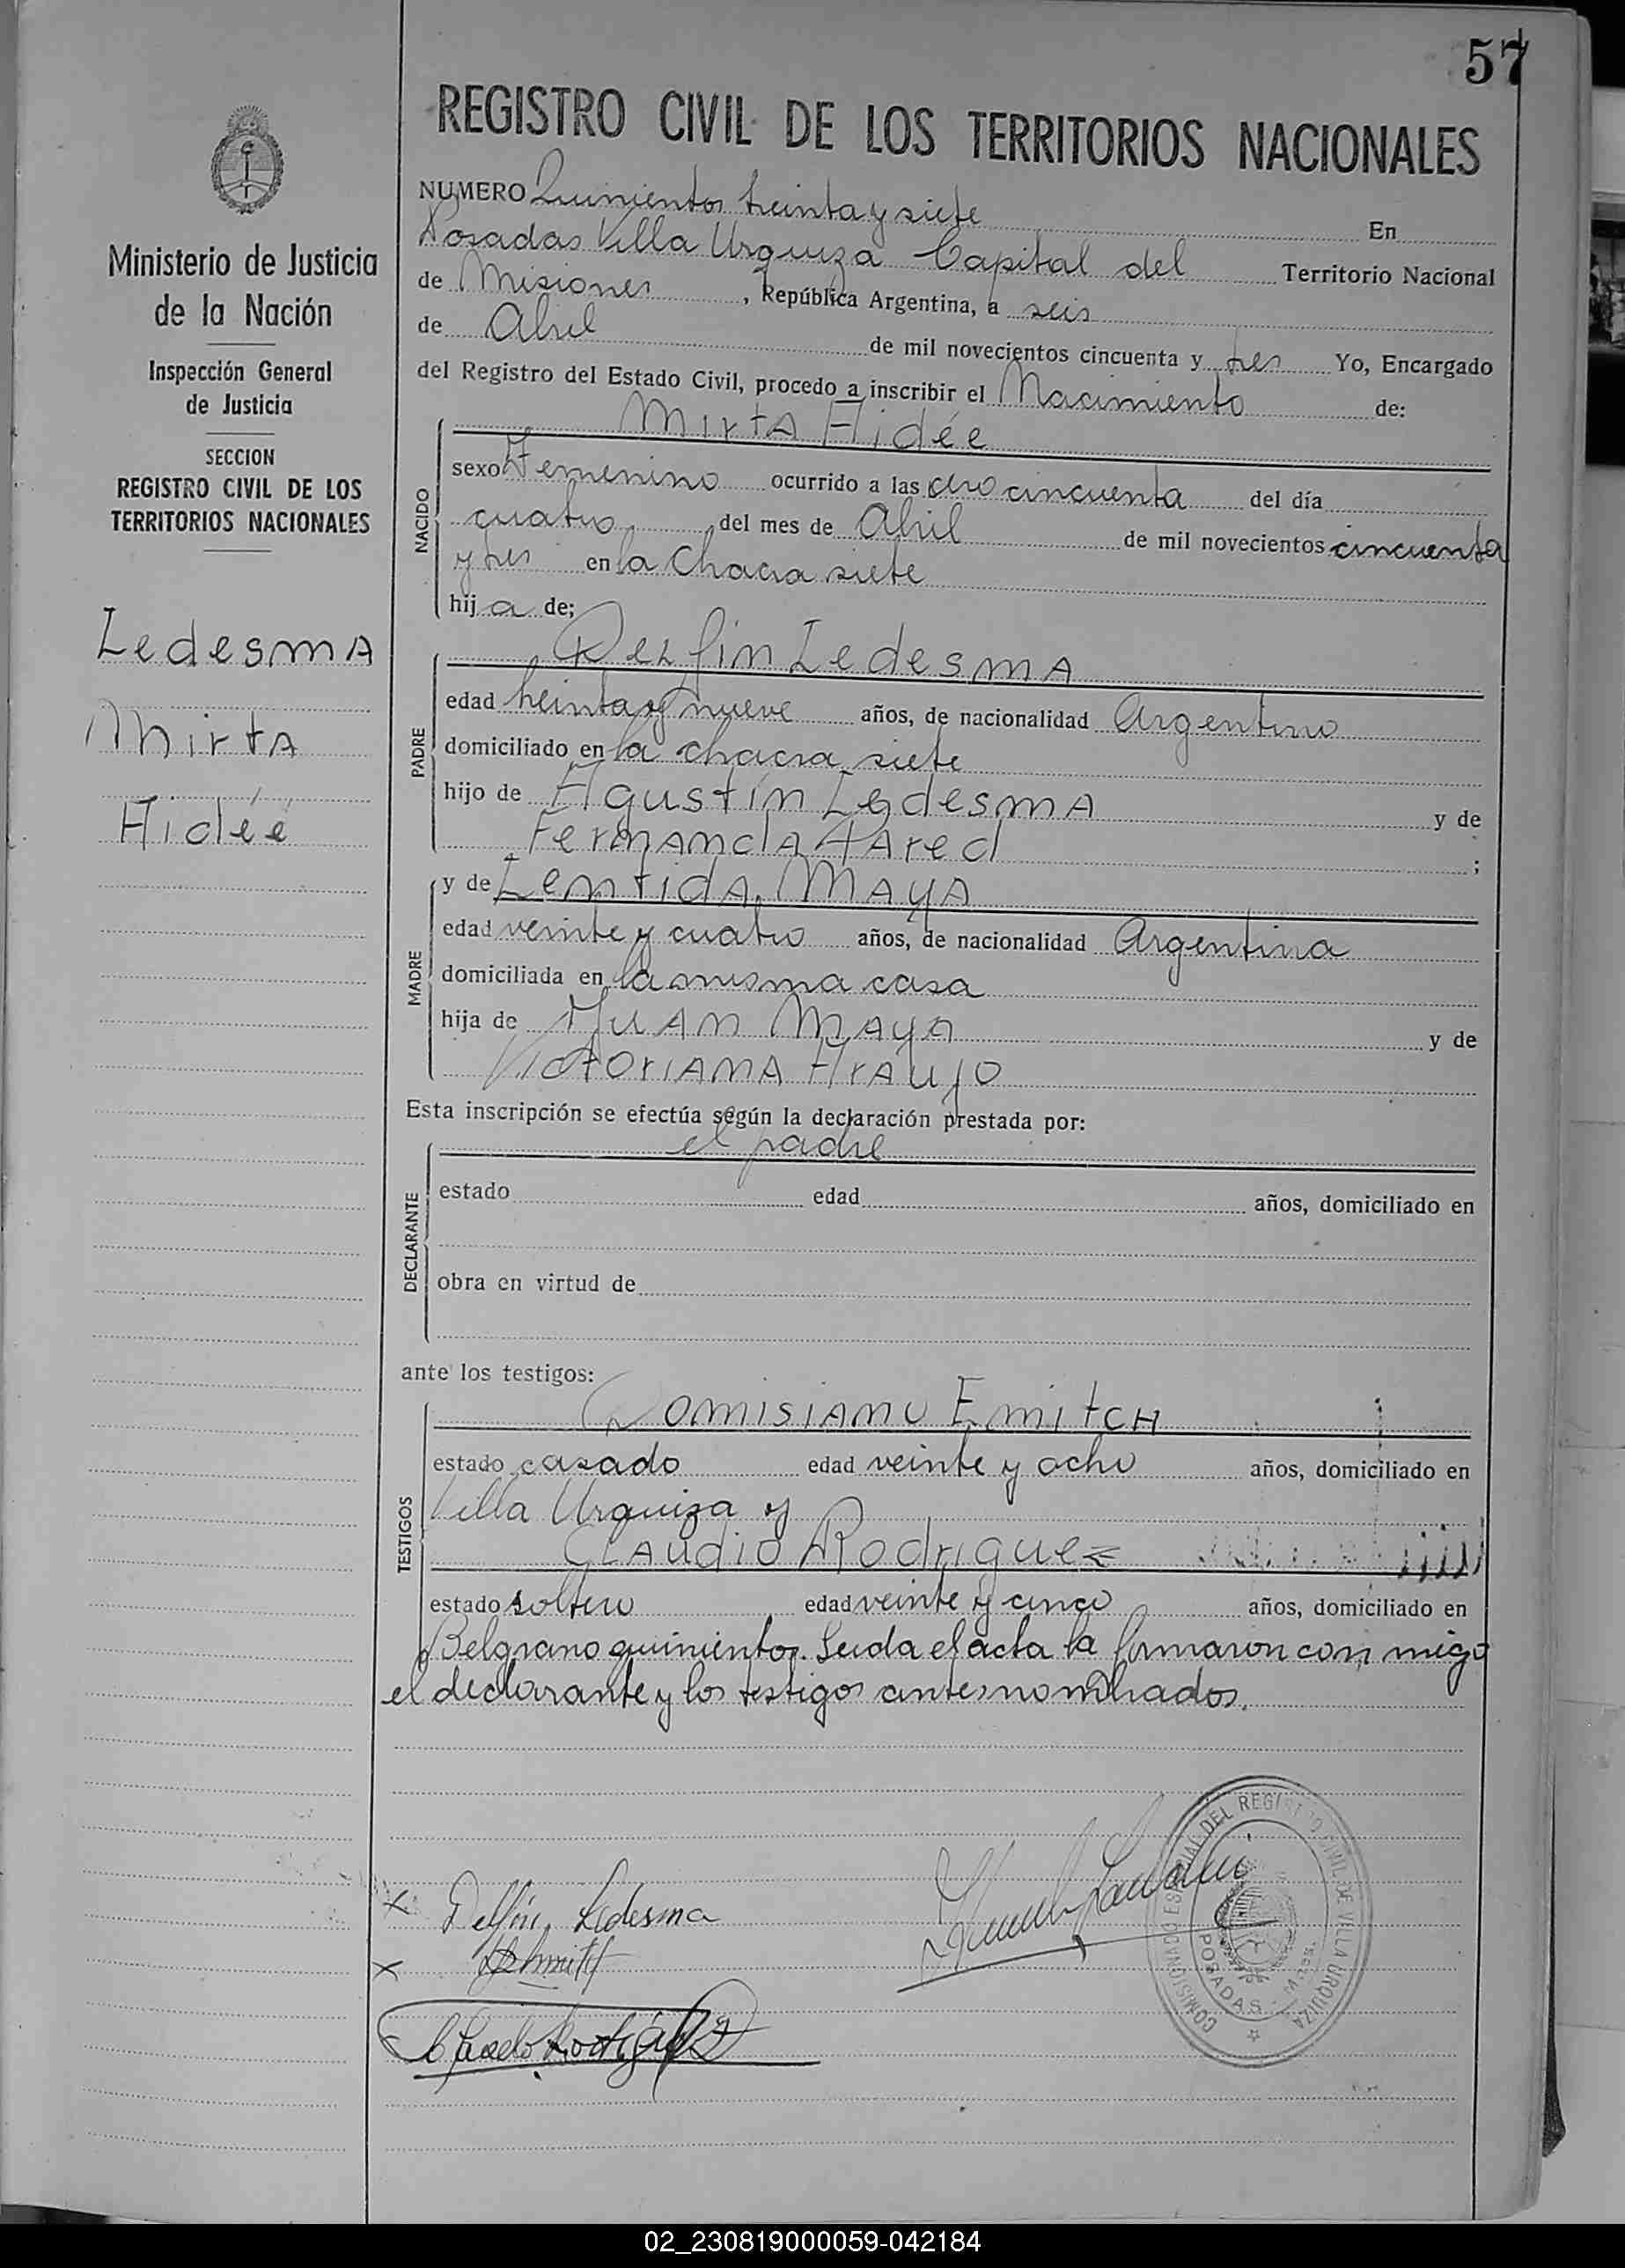 57
REGISTRO CIVIL DE LOS TERRITORIOS NACIONALES
Ministerio de Justicia
de la Nación
Inspección General
de Justicia
SECCION
REGISTRO CIVIL DE LOS
TERRITORIOS NACIONALES
Ledesma
Mirta
Aidéé
NUMERO Quinientos treinta y siete En
Posadas Villa Urquiza Capital del Territorio Nacional
de Misiones, República Argentina, a seis
de Abril de mil novecientos cincuenta y tres Yo, Encargado
del Registro del Estado Civil, procedo a inscribir el Nacimiento de:
NACIDO
Mirta Aidée
sexo Femenino ocurrido a las cero cincuenta del día
cuatro del mes de Abril de mil novecientos cincuenta
y tres en la Chacra siete
hija de;
PADRE
Delfin Ledesma
edad treinta y nueve años, de nacionalidad Argentino
domiciliado en la chacra siete
hijo de Agustín Ledesma y de
Fernanda ;
MADRE
y de Maya
edad veinte y cuatro años, de nacionalidad Argentina
domiciliada en la misma casa
hija de Juan Maya y de
Victoriana Araujo
Esta inscripción se efectúa según la declaración prestada por:
DECLARANTE
el padre
estado edad años, domiciliado en
obra en virtud de
ante los testigos:
TESTIGOS
Domisiano Emitch
estado casado edad veinte y ocho años, domiciliado en
Villa Urquiza y
Claudio Rodriguez
estado soltero edad veinte y cinco años, domiciliado en
Belgrano quinientos. Leida el acta la firmaron con migo
el declarante y los testigos antes nombrados.
x Delfin Ledesma
x
Rodríguez
COMISIONADO ESPECIAL DEL REGISTRO CIVIL DE VILLA URQUIZA
POSADAS - M
02_230819000059-042184